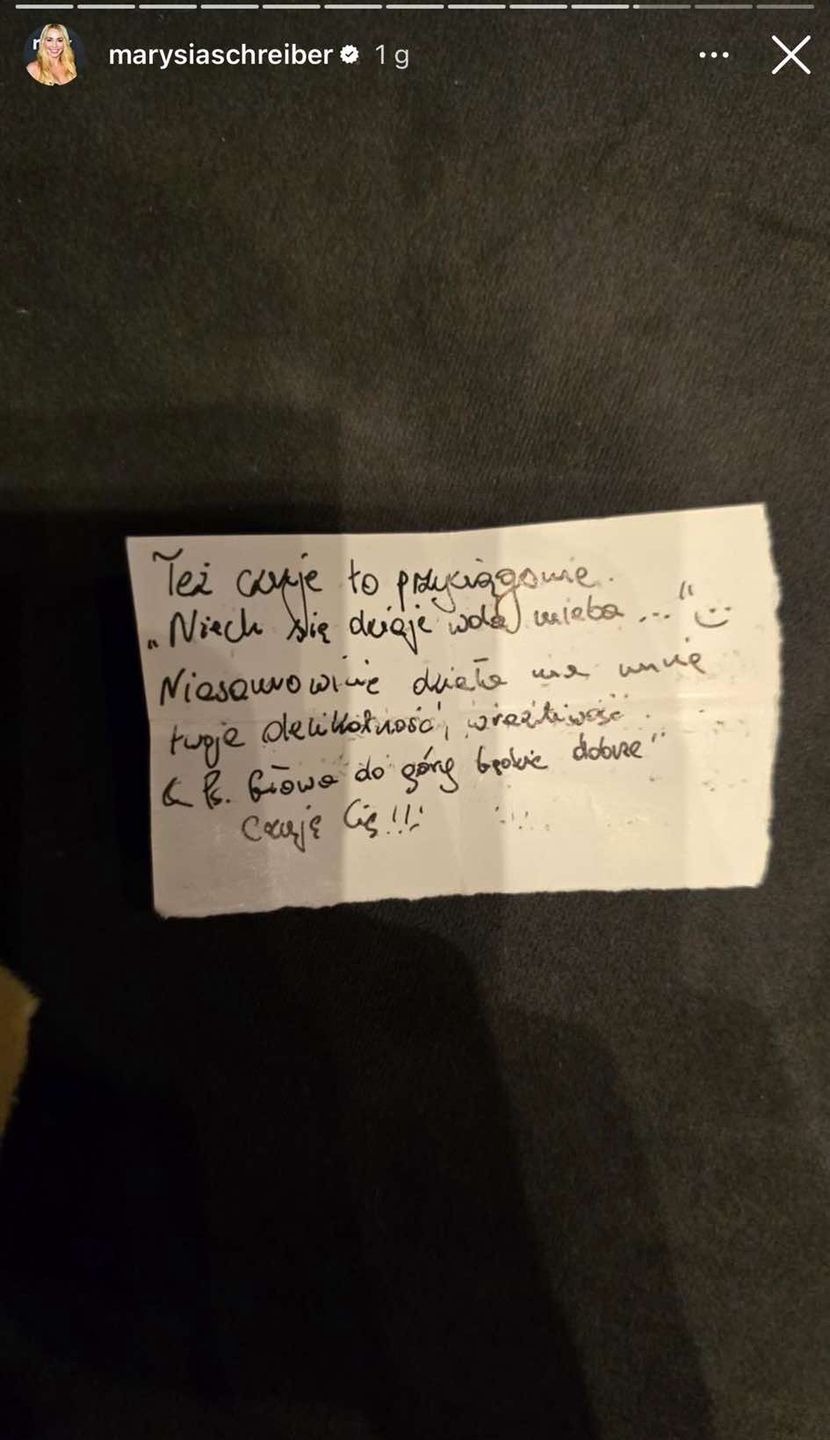 marysiaschreiber 1 g
Też czuje to przyciąganie.
„Niech się dzieje wola nieba..." :)
Niesamowicie działa na mnie
twoje delikatność, wrażliwość.
Ps. Głowa do góry będzie dobrze"
Czuję Cię!!!